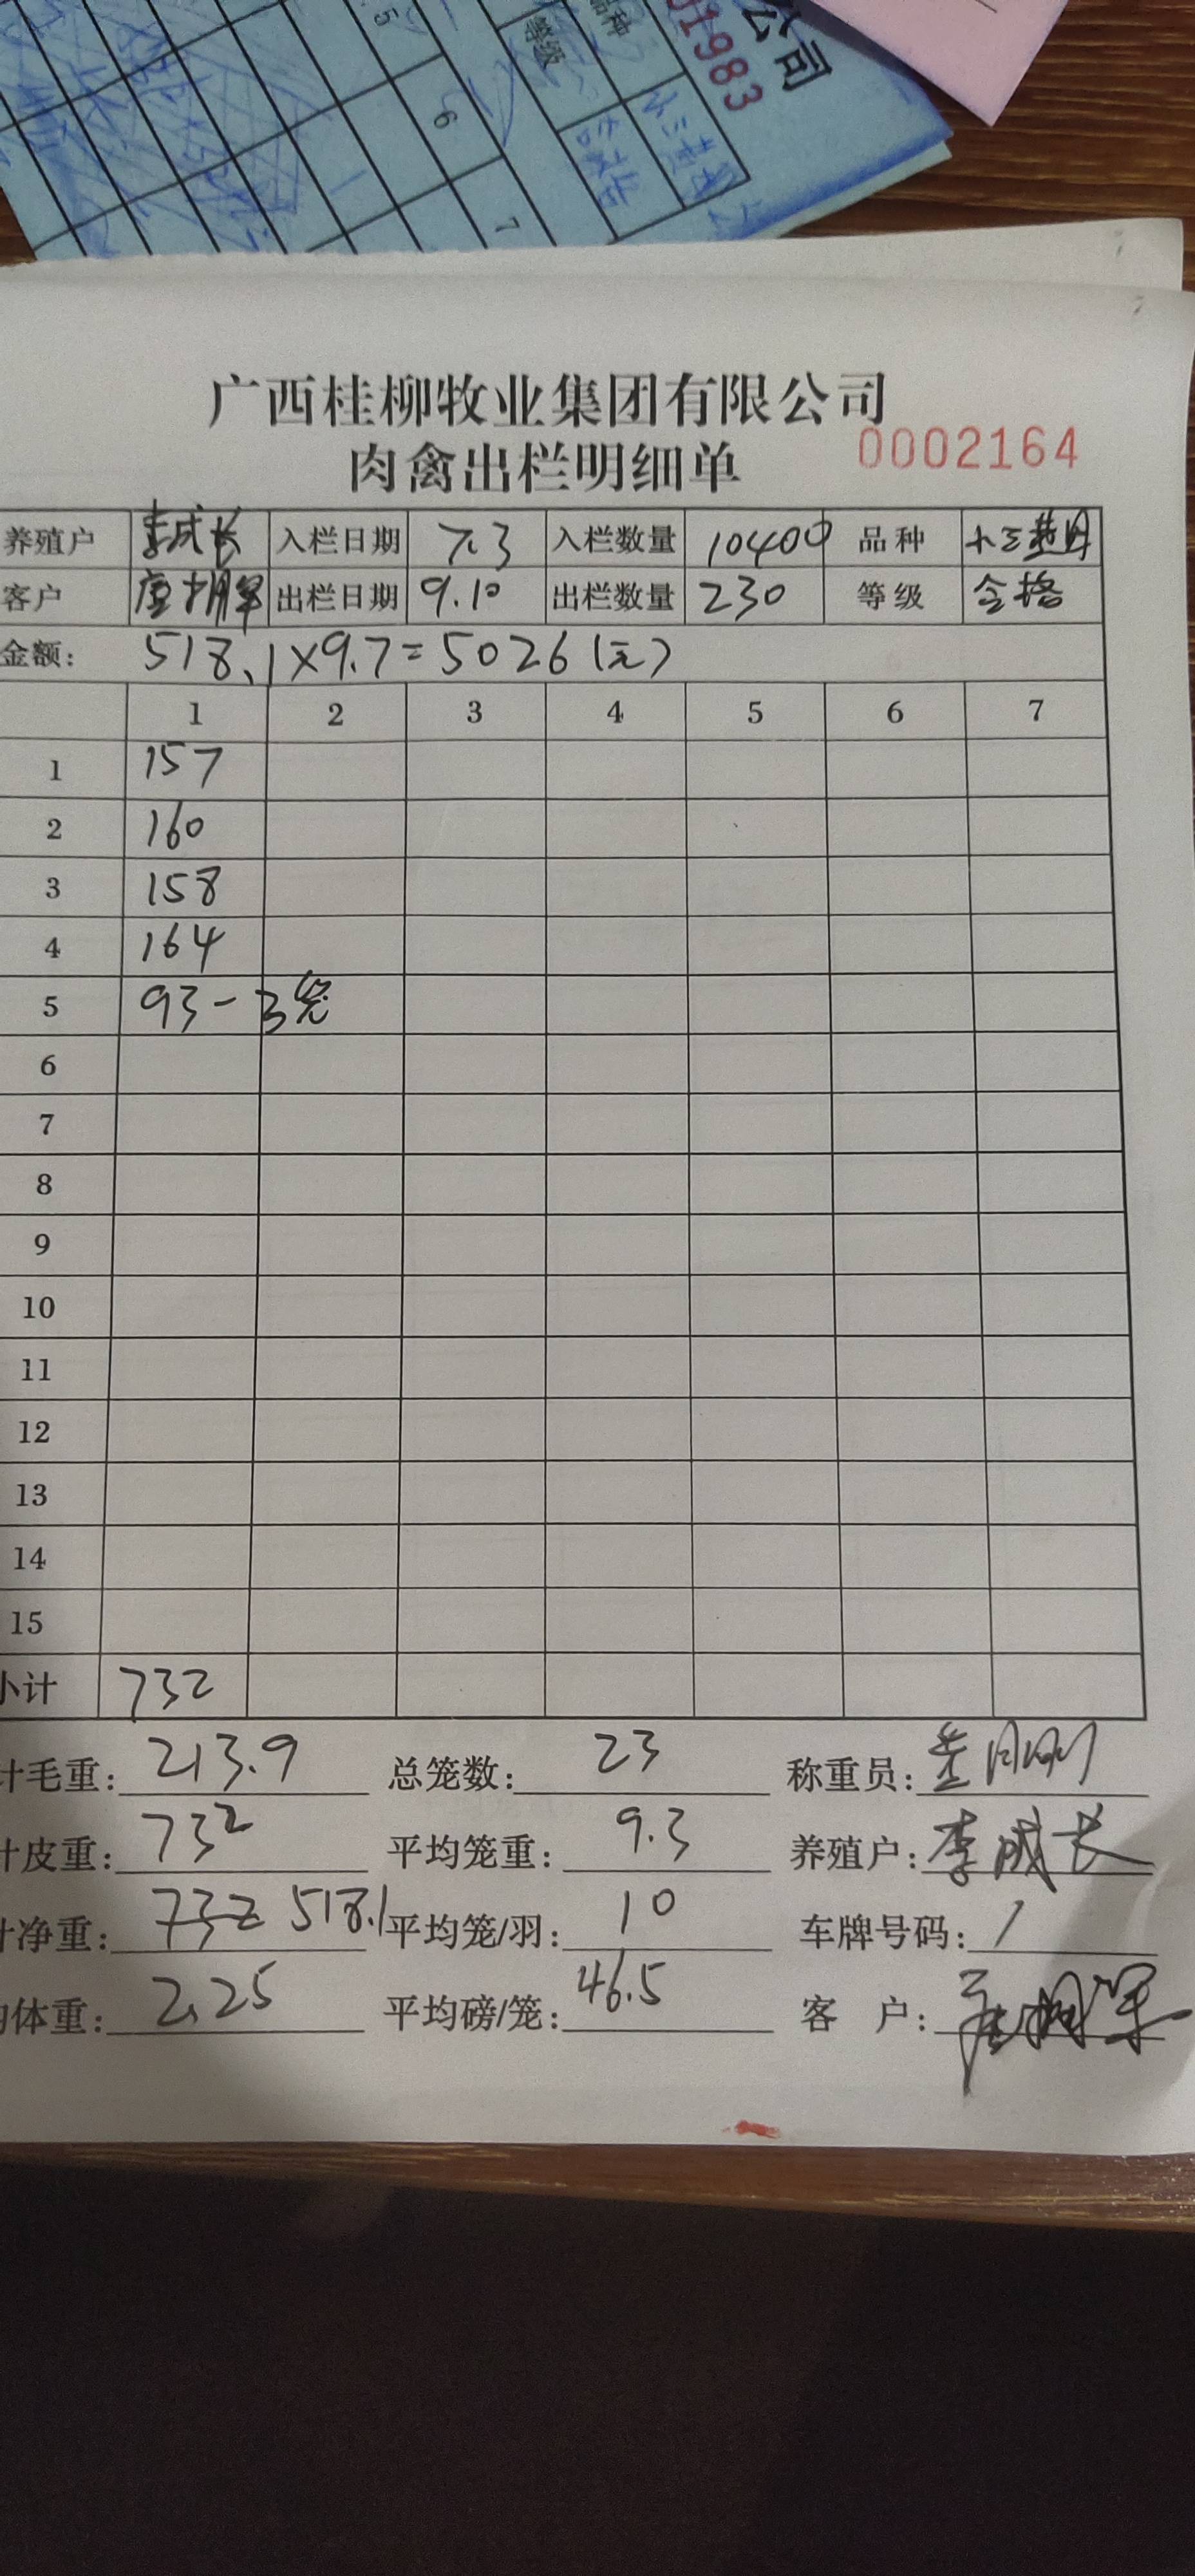 公司
01983
品种
等级
合格
5
6
7
广西桂柳牧业集团有限公司
肉禽出栏明细单
0002164
养殖户 李成长 入栏日期 7.3 入栏数量 10400 品种
客户 出栏日期 9.10 出栏数量 230 等级 合格
金额: 518.1×9.7=5026(元)
1 2 3 4 5 6 7
1 157
2 160
3 158
4 164
5 93-3笼
6
7
8
9
10
11
12
13
14
15
小计 732
计毛重: 213.9 总笼数: 23 称重员:
计皮重: 732 平均笼重: 9.3 养殖户: 李成长
计净重: 732 518.1 平均笼/羽: 10 车牌号码: /
体重: 2.25 平均磅/笼: 46.5 客 户: